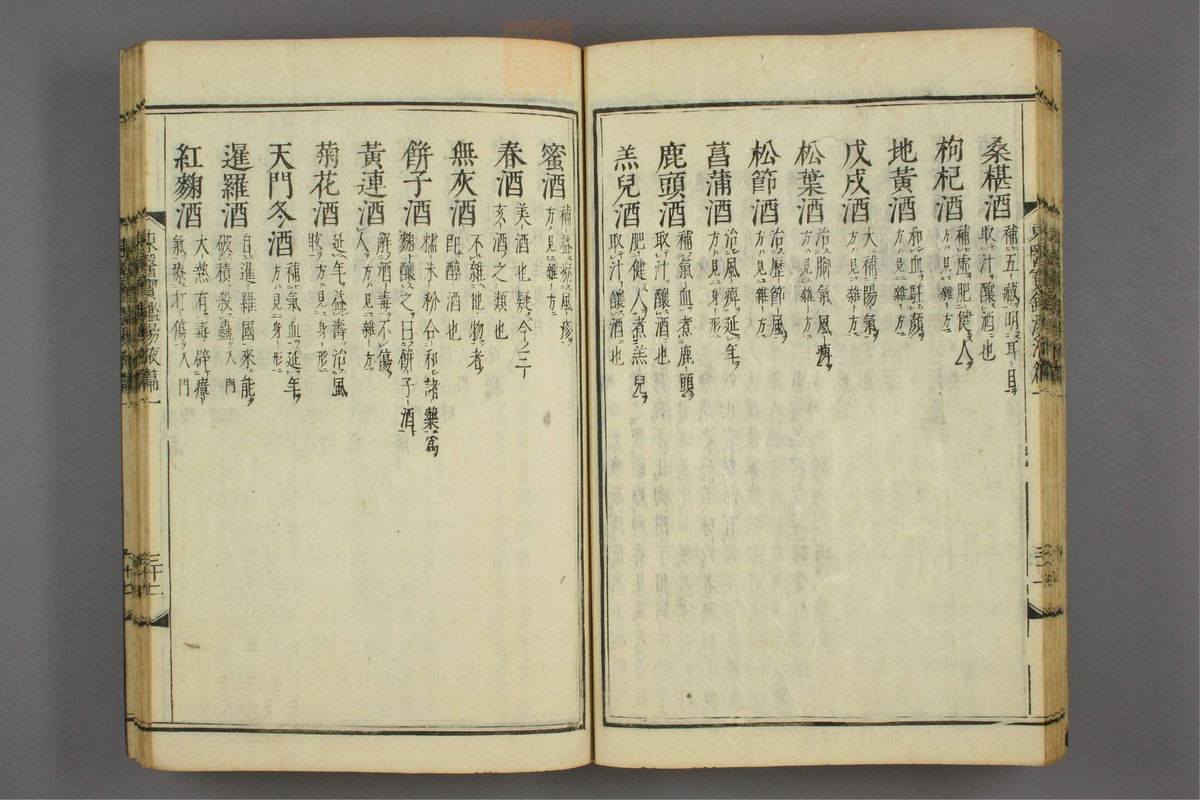 桑椹酒 補五臟明耳目
取汁釀酒也
枸杞酒 補虛肥健人
方見雜方
地黃酒 和血駐顏
方見雜方
戊戌酒 大補陽氣
方見雜方
松葉酒 治脚氣風痺
方見雜方
松節酒 治歷節風
方見雜方
菖蒲酒 治風痺延年
方見身形
鹿頭酒 補氣血煮鹿頭
取汁釀酒也
羔兒酒 肥健人煮羔兒
取汁釀酒也
蜜酒 補益療風疹
方見雜方
春酒 美酒也疑今之三
亥酒之類也
無灰酒 不雜他物者
即醇酒也
餠子酒 糯米粉合和諸藥爲
麴釀之曰餠子酒
黃連酒 解酒毒不傷
人方見雜方
菊花酒 延年益壽治風
眩方見身形
天門冬酒 補氣血延年
方見身形
暹羅酒 自暹羅國來能
破積殺蠱入門
紅麴酒 大熱有毒辟瘴
氣療打傷入門
東醫寶鑑湯液篇一
三十二